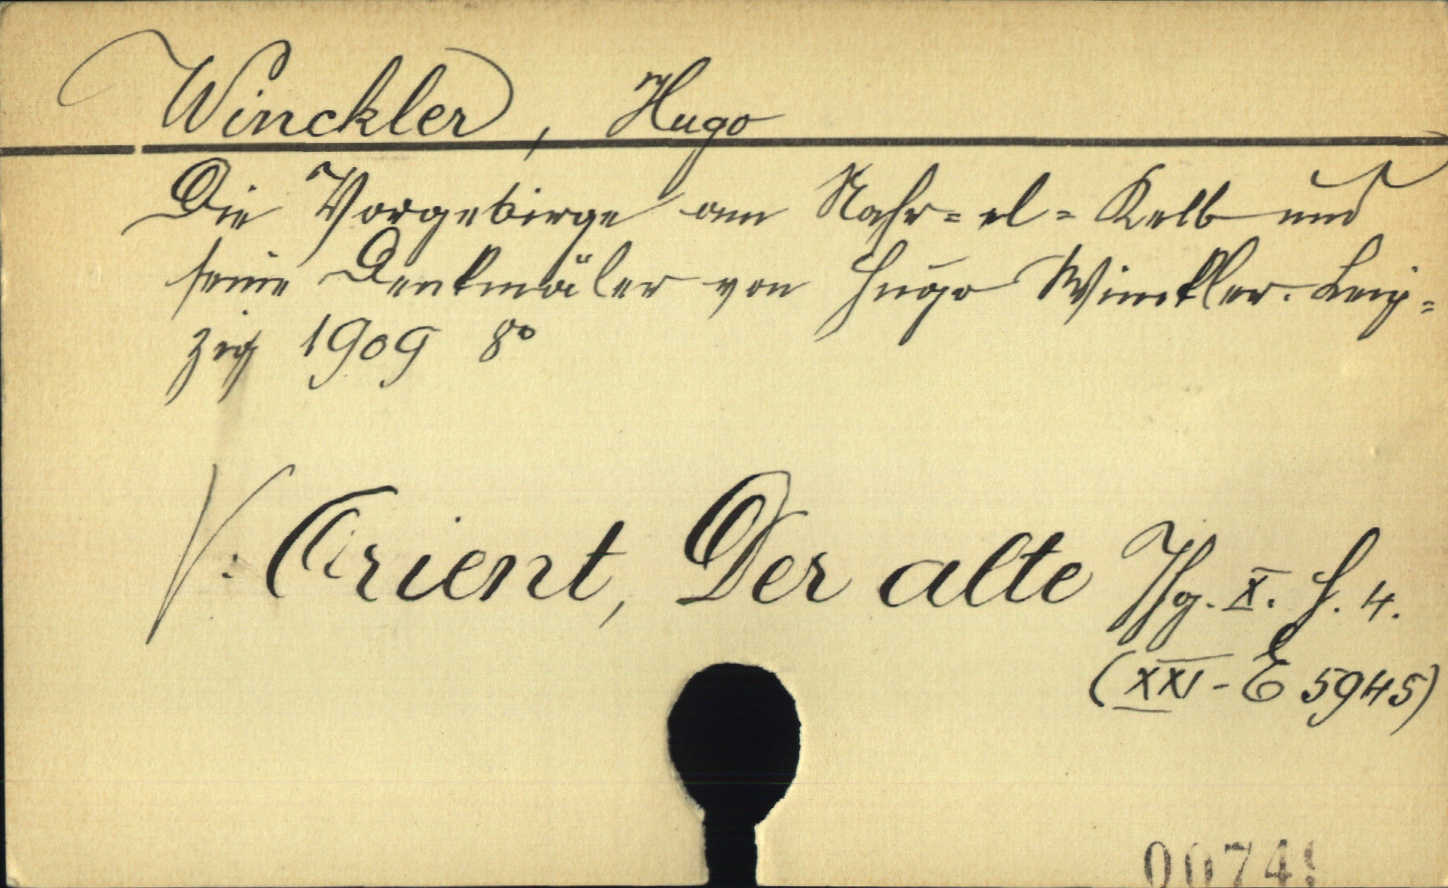 Winckler, Hugo
Die Vorgebirge am Nahr-el-Kelb und
seine Denkmäler von Hugo Winckler. Leip-
zig 1909 8°
V: Orient, Der alte Jhg. X. H. 4.
(XXI-E 5945)